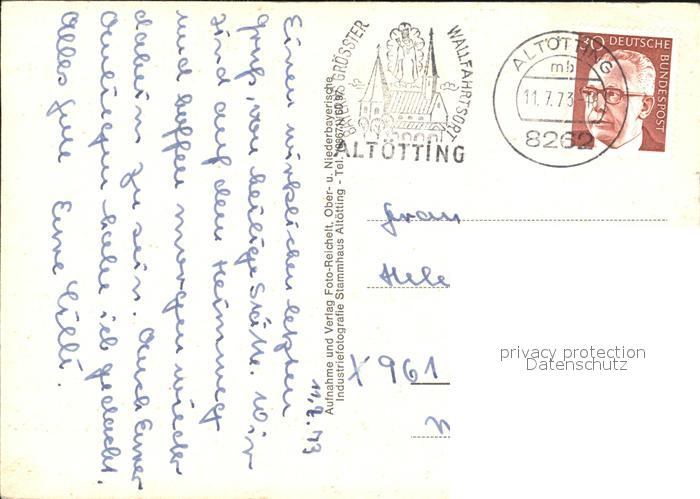 11.7.73
Einen wirklichen letzten
Gruß von heiliger Stätte. Wir
sind auf dem Heimweg
und hoffen morgen wieder
daheim zu sein. Auch Euner
Anliegen habe ich gedacht.
Alles Gute Eure Lilli.
Aufnahme und Verlag Foto-Reichelt, Ober- u. Niederbayerische
Industriefotografie Stammhaus Altötting - Tel.
BAYERNS GRÖSSTER
WALLFAHRTSORT
ALTÖTTING
ALTÖTTING
mb
11.7.73
8262
30 DEUTSCHE
BUNDESPOST
Frau
Hele
X 961
privacy protection
Datenschutz